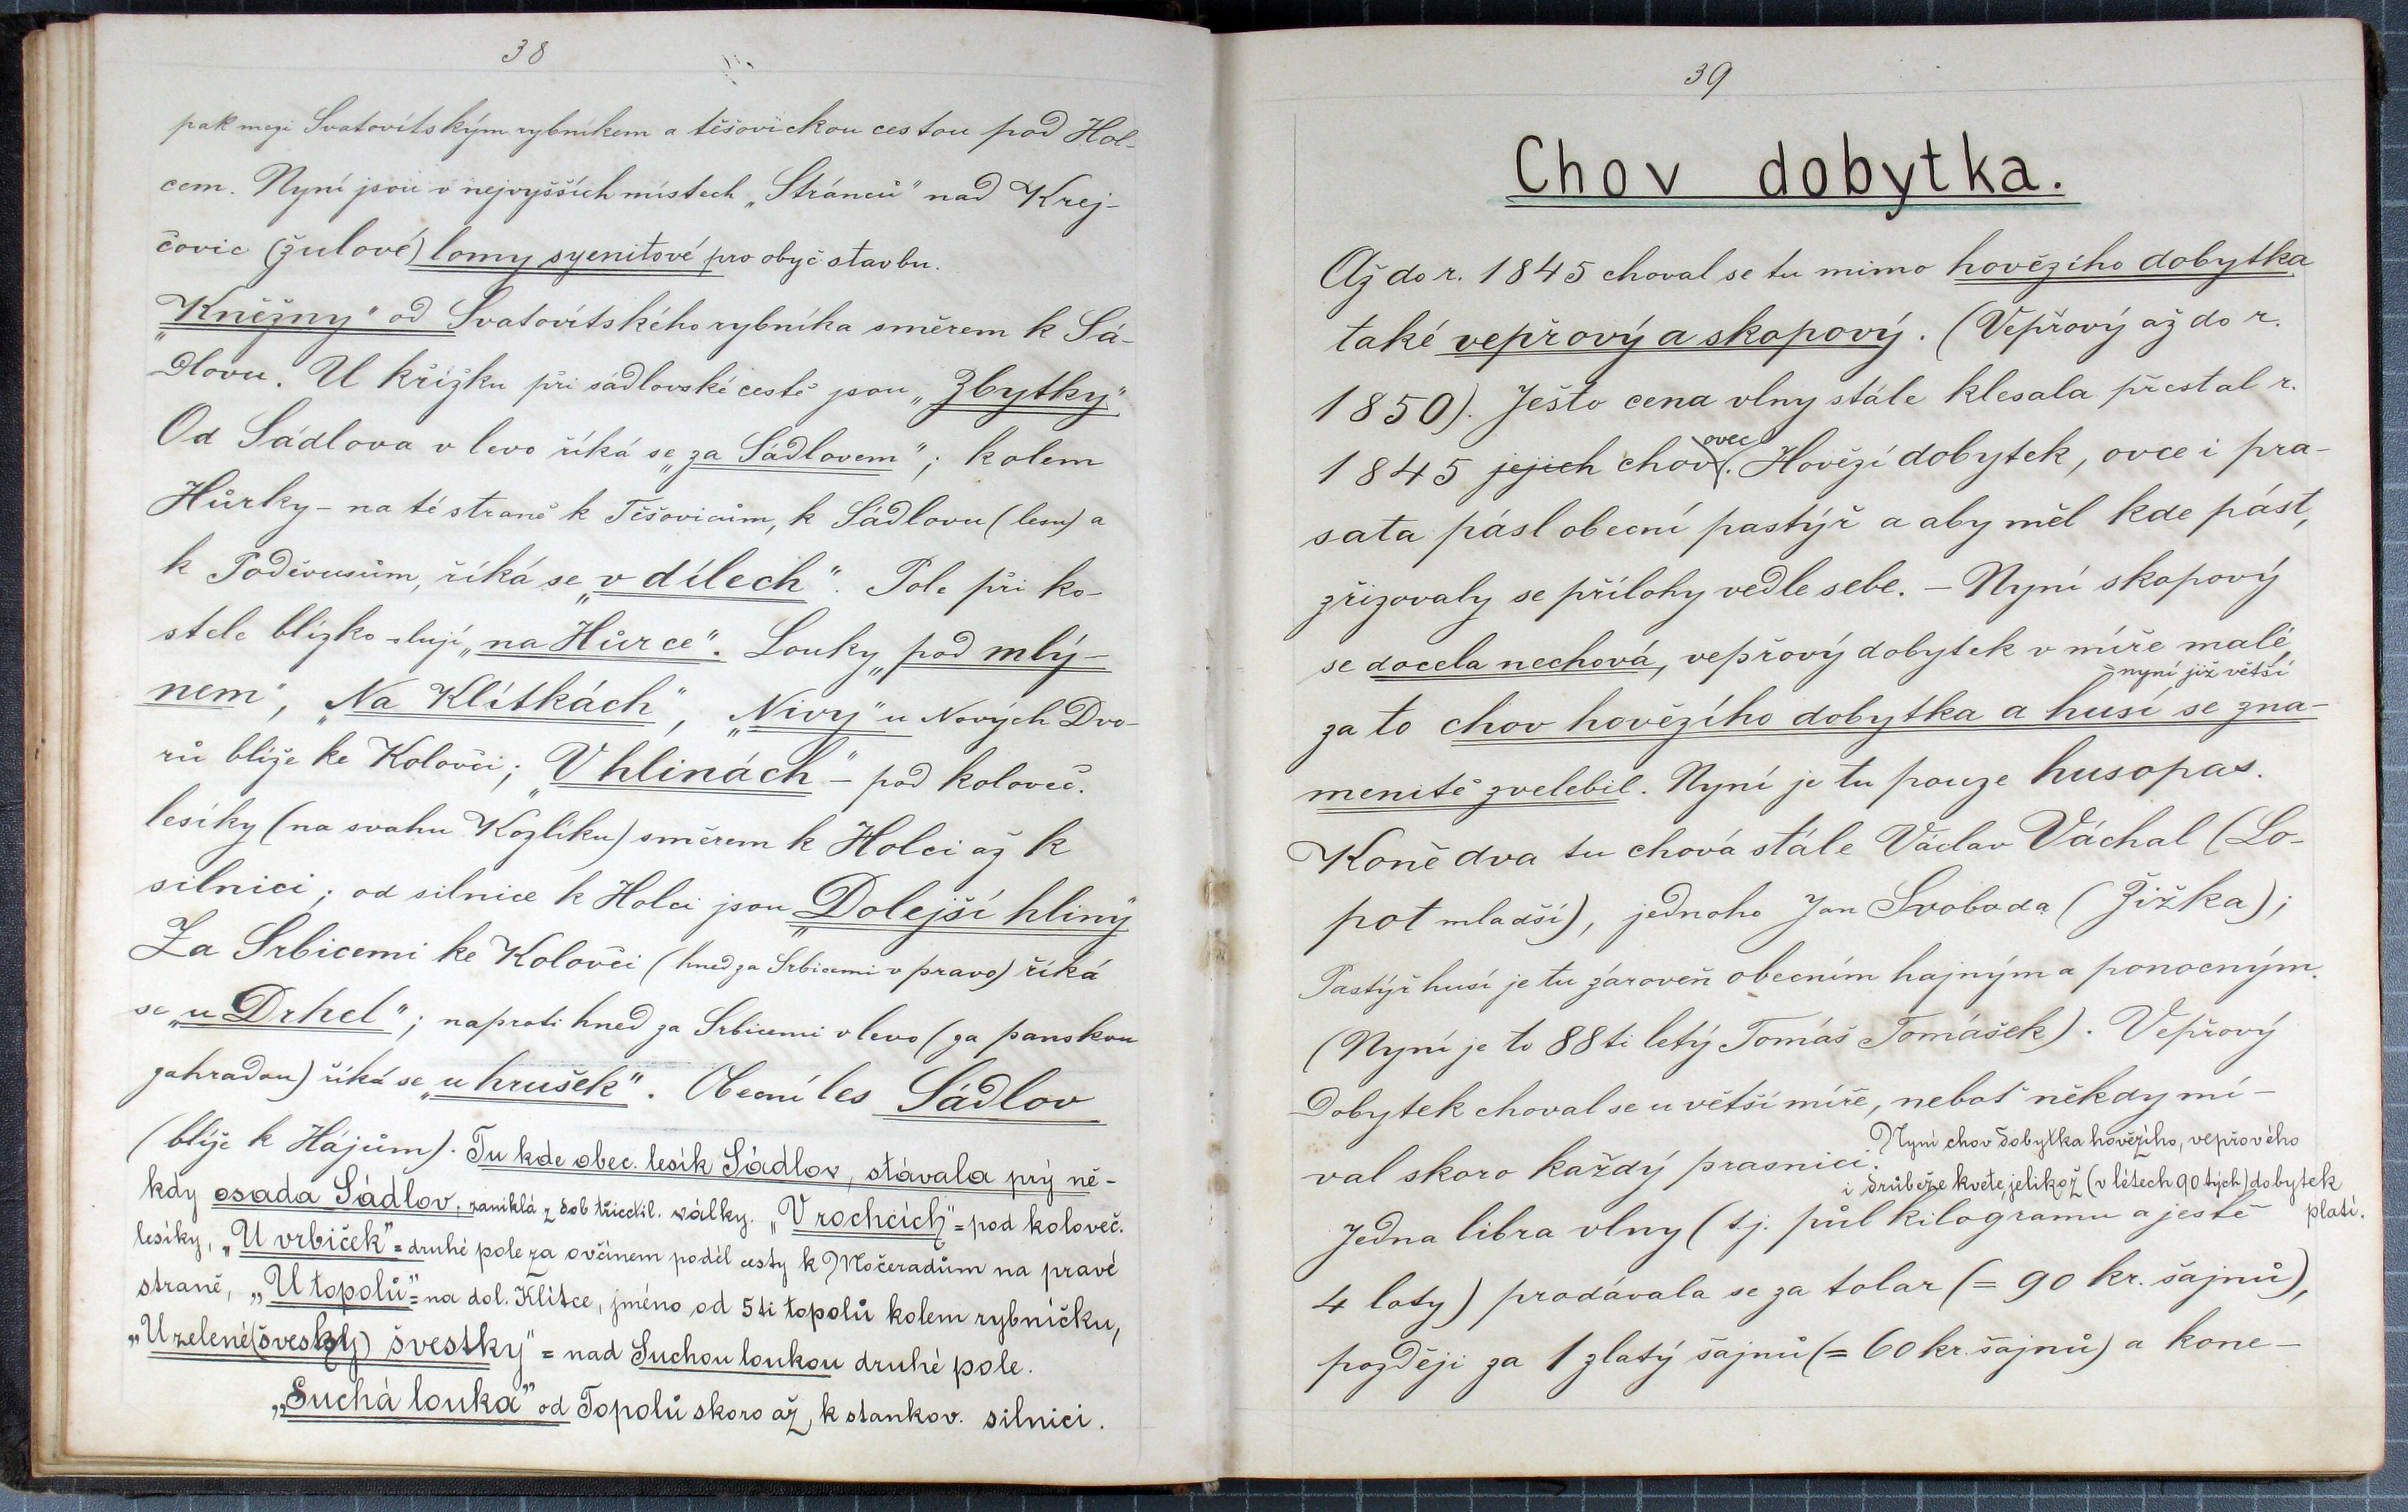 38
pak mezi Svatovítským rybníkem a těšovickou cestou pod Hol-
cem. Nyní jsou v nejvyšších místech „Stránců" nad Krej-
čovic (žulové) lomy syenitové pro obyč. stavbu.
„Kněžny" od Svatovítského rybníka směrem k Sá-
dlovu. U křížku při sádlovské cestě jsou „Zbytky"
Od Sádlova v levo říká se „za Sádlovem"; kolem
Hůrky – na té straně k Těšovicům, k Sádlovu (lesu) a
k Poděvusům, říká se „v dílech". Pole při ko-
stele blízko slují „na Hůrce". Louky „pod mlý-
nem", „Na Klítkách", „Nivy" u Nových Dvo-
rů blíže ke Kolovči; „V hlinách" – pod koloveč.
lesíky (na svahu Kozlíku) směrem k Holci až k
silnici; od silnice k Holci jsou „Dolejší hliny"
Za Srbicemi ke Kolovči (hned za Srbicemi v pravo) říká
se „u Drhel"; naproti hned za Srbicemi v levo (za panskou
zahradou) říká se „u hrušek". Obecní les Sádlov
(blíže k Hájům). Tu kde obec. lesík Sádlov, stávala prý ně-
kdy osada Sádlov, zaniklá z dob třicetil. války. „V rochcích" = pod koloveč.
lesíky, „U vrbiček" = druhé pole za ovčínem podél cesty k Močeradům na pravé
straně, „U topolů" = na dol. Klítce, jméno od 5ti topolů kolem rybníčku,
„U zelené (švesky) švestky" = nad Suchou loukou druhé pole.
„Suchá louka" od Topolů skoro až k stankov. silnici.
39
Chov dobytka.
Až do r. 1845 choval se tu mimo hovězího dobytka
také vepřový a skopový. (Vepřový až do r.
1850). Ješto cena vlny stále klesala přestal r.
1845 jejich chov ovec. Hovězí dobytek, ovce i pra-
sata pásl obecní pastýř a aby měl kde pást,
zřizovaly se přílohy vedle sebe. – Nyní skopový
se docela nechová, vepřový dobytek v míře malé,
nyní již větší
za to chov hovězího dobytka a husí se zna-
menitě zvelebil. Nyní je tu pouze husopas.
Koně dva tu chová stále Václav Váchal (Lo-
pot mladší), jednoho Jan Svoboda (Žižka);
Pastýř husí je tu zároveň obecním hajným a ponocným.
(Nyní je to 88ti letý Tomáš Tomášek). Vepřový
dobytek choval se u větší míře, neboť někdy mí-
val skoro každý prasnici. Nyní chov dobytka hovězího, vepřového
i drůbeže kvete, jelikož (v létech 90tých) dobytek
platí.
Jedna libra vlny (tj. půl kilogramu a ještě
4 loty) prodávala se za tolar (= 90 kr. šajnů),
později za 1 zlatý šajnů (= 60 kr. šajnů) a kone-